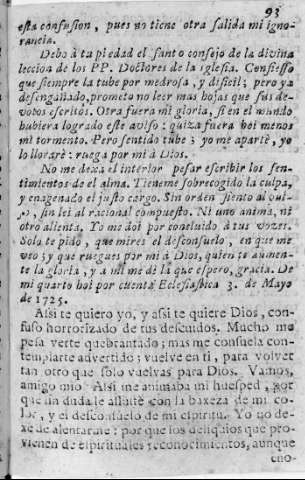 93
esta confusion, pues no tiene otra salida mi igno-
rancia.
Debo à tu piedad el santo consejo de la divina
leccion de los PP. Doctores de la Iglesia. Confiesso
que siempre la tube por medrosa, y dificil; pero ya
desengañado, prometo no leer mas hojas que sus de-
votos escritos. Otra fuera mi gloria, si en el mundo
hubiera logrado este aviso: quiza fuera hoi menos
mi tormento. Pero sentido tube; yo me aparté, yo
lo lloraré: ruega por mi à Dios.
No me dexa el interior pesar escribir los sen-
timientos de el alma. Tieneme sobrecogido la culpa,
y enagenado el justo cargo. Sin orden siento al
sin lei al racional compuesto. Ni uno anima, ni
otro alienta. Yo me doi por concluido à tus vozes.
Solo te pido, que mires el desconsuelo, en que me
veo; y que ruegues por mi à Dios, quien te aumen-
te la gloria, y a mi me dé la que espero, gracia. De
mi quarto hoi por cuenta Eclesiastica 3. de Mayo
de 1725.
Assi te quiero yo, y assi te quiere Dios, con-
fuso horrorizado de tus descuidos. Mucho me
pesa verte quebrantado; mas me consuela con-
templarte advertido; vuelve en ti, para volver
tan otro que solo vuelvas para Dios. Vamos,
amigo mio. Assi me animaba mi huesped, por-
que sin duda le assusté con la baxeza de mi co-
lor, y el desconsuelo de mi espiritu. Yo no de-
xé de alentarme: por que los deliquios que pro-
vienen de espirituales reconocimientos, aunque